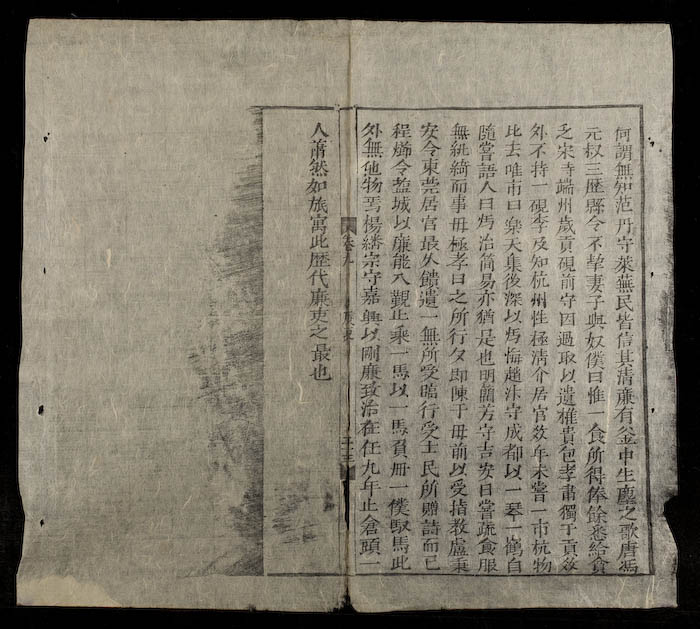 何謂無知范丹守萊蕪民皆信其清廉有釜中生塵之歌唐馮
元叔三歷縣令不挈妻子與奴僕日惟一食所得俸餘悉給貧
乏宋寺端州歲貢硯前守因過取以遺權貴包孝肅獨于貢數
外不持一硯李及知杭州性極清介居官數年未嘗一市杭物
比去唯市白樂天集後深以為悔趙汴守成都以一琴一鶴自
隨嘗語人曰為治簡易亦猶是也明藺芳守吉安日嘗疏食服
無紈綺而事母極孝日之所行夕即陳于母前以受指教盧秉
安令東莞居官最久饋遺一無所受臨行受士民所贈詩而已
程燐令盈城以廉能入觀止乘一馬以一馬負冊一僕馭馬此
外無他物焉楊繼宗守嘉興以剛廉致治在任九年止倉頭一
卷九
人蕭然如旅寓此歷代廉吏之最也